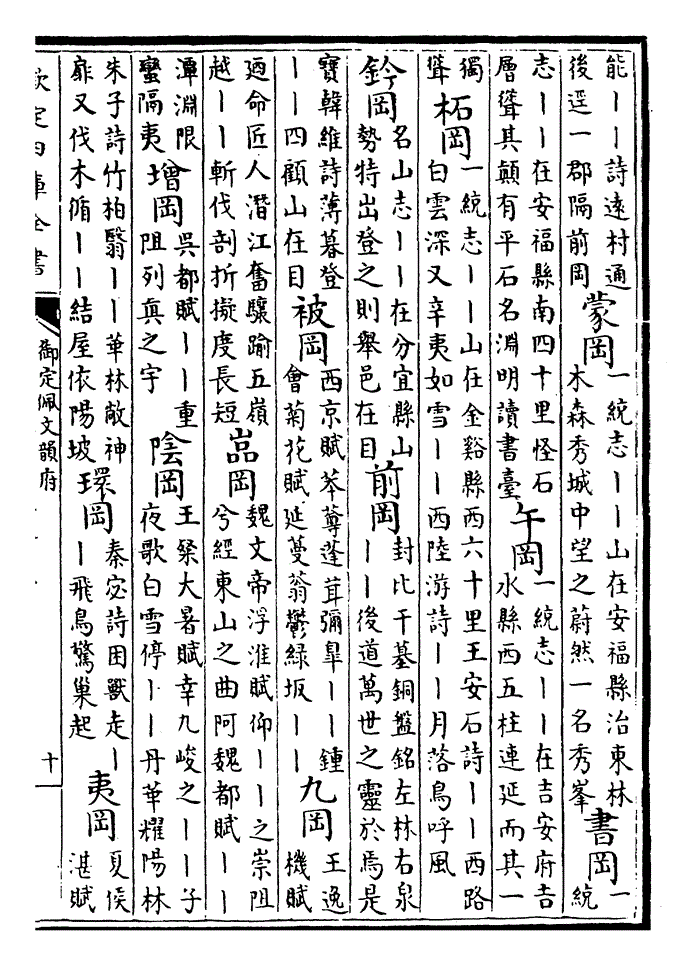 能丨丨詩遠村通後逕一郡隔前岡 蒙岡 一統志丨丨山在安福縣治東林木森秀城中望之蔚然一名秀峯 書岡 一統
志丨丨在安福縣南四十里怪石層聳其顛有平石名淵明讀書臺 午岡 一統志丨丨在吉安府吉水縣西五柱連延而其一
獨聳 柘岡 一統志丨丨山在金谿縣西六十里王安石詩丨丨西路白雲深又辛夷如雪丨丨西陸游詩丨丨月落鳥呼風
鈐岡 名山志丨丨在分宜縣山勢特出登之則舉邑在目 前岡 封比干墓銅盤銘左林右泉丨丨後道萬世之靈於焉是
寶韓維詩薄暮登丨丨四顧山在目 被岡 西京賦苯䔿蓬茸彌臯丨丨鍾會菊花賦延蔓蓊鬱緑坂丨丨 九岡 王逸機賦
逎命匠人潛江奮驤踰五嶺越丨丨斬伐剖折擬度長短 嵓岡 魏文帝浮淮賦仰丨丨之崇阻兮經東山之曲阿魏都賦丨丨
潭淵限蠻隔夷 增岡 吳都賦丨丨重阻列真之宇 陰岡 王粲大暑賦幸九峻之丨丨子夜歌白雪停丨丨丹華耀陽林
朱子詩竹柏翳丨丨華林敞神扉又伐木脩丨丨結屋依陽坡 環岡 秦宓詩困獸走丨丨飛鳥驚巢起 夷岡 夏侯湛賦
欽定四庫全書
御定佩文韻府
十